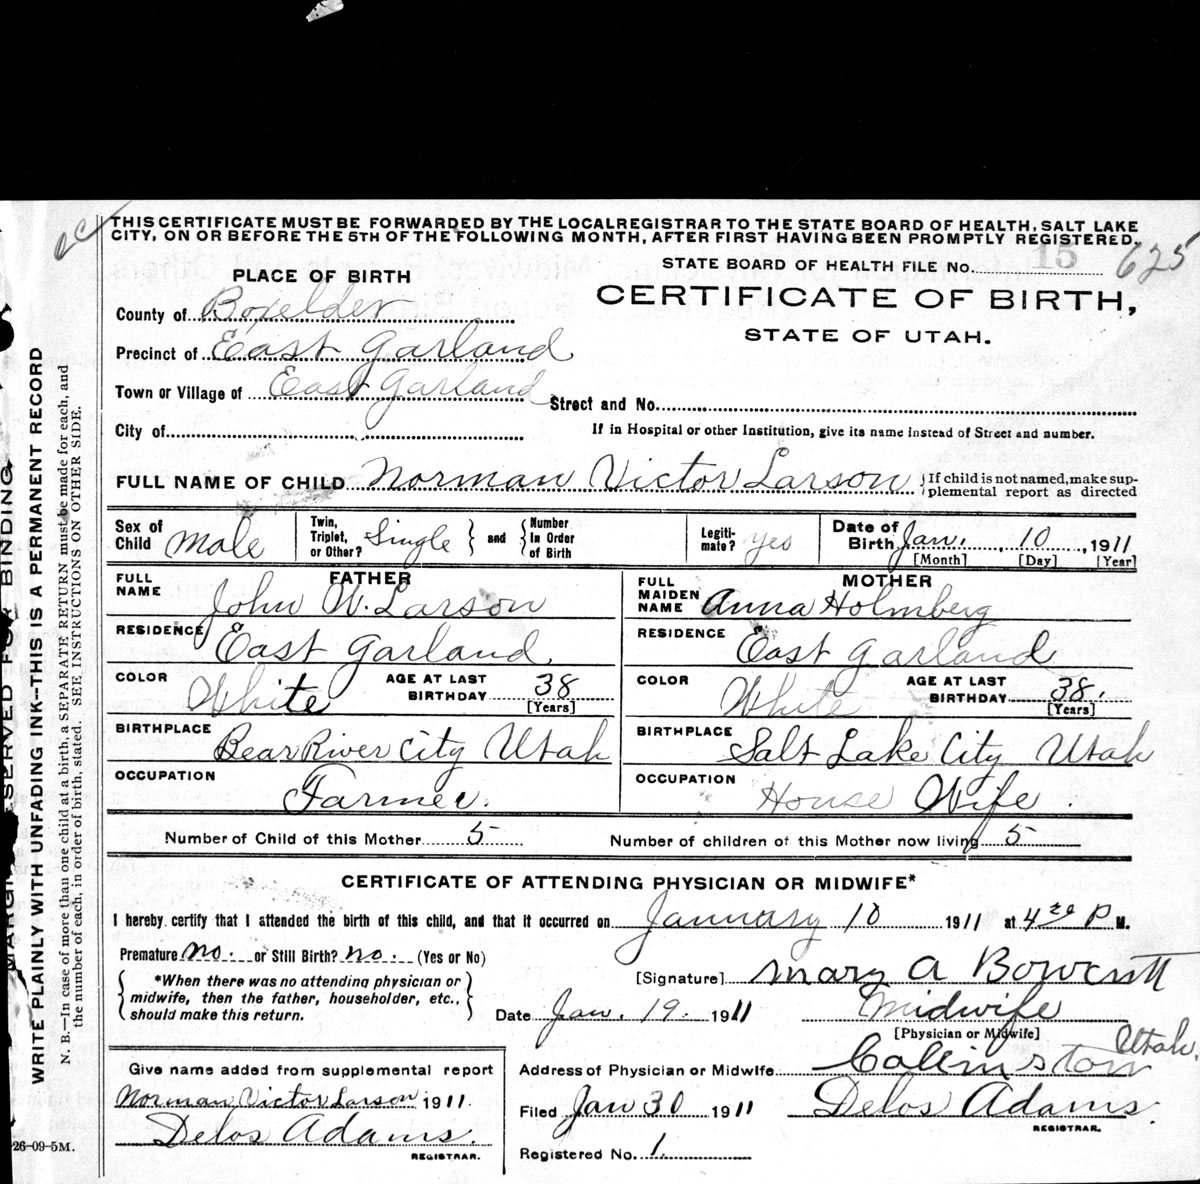 THIS CERTIFICATE MUST BE FORWARDED BY THE LOCAL REGISTRAR TO THE STATE BOARD OF HEALTH, SALT LAKE
CITY, ON OR BEFORE THE 5TH OF THE FOLLOWING MONTH, AFTER FIRST HAVING BEEN PROMPTLY REGISTERED.
STATE BOARD OF HEALTH FILE No. 15 625
PLACE OF BIRTH
CERTIFICATE OF BIRTH,
STATE OF UTAH.
County of Boxelder
Precinct of East Garland
Town or Village of East Garland
Street and No.
City of
If in Hospital or other Institution, give its name instead of Street and number.
FULL NAME OF CHILD Norman Victor Larson { If child is not named, make sup-
plemental report as directed
Sex of Child Male
Twin, Triplet, or Other? Single } and { Number In Order of Birth
Legiti-mate? yes
Date of Birth Jan. 10, 1911
[Month] [Day] [Year]
FATHER
FULL NAME John W. Larson
RESIDENCE East Garland
COLOR White AGE AT LAST BIRTHDAY 38
[Years]
BIRTHPLACE Bear River City Utah
OCCUPATION Farmer.
MOTHER
FULL MAIDEN NAME Anna Holmberg
RESIDENCE East Garland
COLOR White AGE AT LAST BIRTHDAY 38.
[Years]
BIRTHPLACE Salt Lake City Utah
OCCUPATION House Wife.
Number of Child of this Mother 5 Number of children of this Mother now living 5
CERTIFICATE OF ATTENDING PHYSICIAN OR MIDWIFE*
I hereby certify that I attended the birth of this child, and that it occurred on January 10 1911 at 4 30 P M.
Premature no. or Still Birth? no. (Yes or No)
{ *When there was no attending physician or
midwife, then the father, householder, etc.,
should make this return. }
[Signature] Mary A Bowcutt
Date Jan. 19. 1911 Midwife
[Physician or Midwife]
Utah.
Address of Physician or Midwife
Filed Jan 30 1911 Delos Adams
REGISTRAR.
Registered No. 1.
Give name added from supplemental report
Norman Victor Larson 1911.
Delos Adams.
REGISTRAR.
26-09-5M.
WRITE PLAINLY WITH UNFADING INK—THIS IS A PERMANENT RECORD
N. B.—In case of more than one child at a birth, a SEPARATE RETURN must be made for each, and
the number of each, in order of birth, stated. SEE INSTRUCTIONS ON OTHER SIDE.